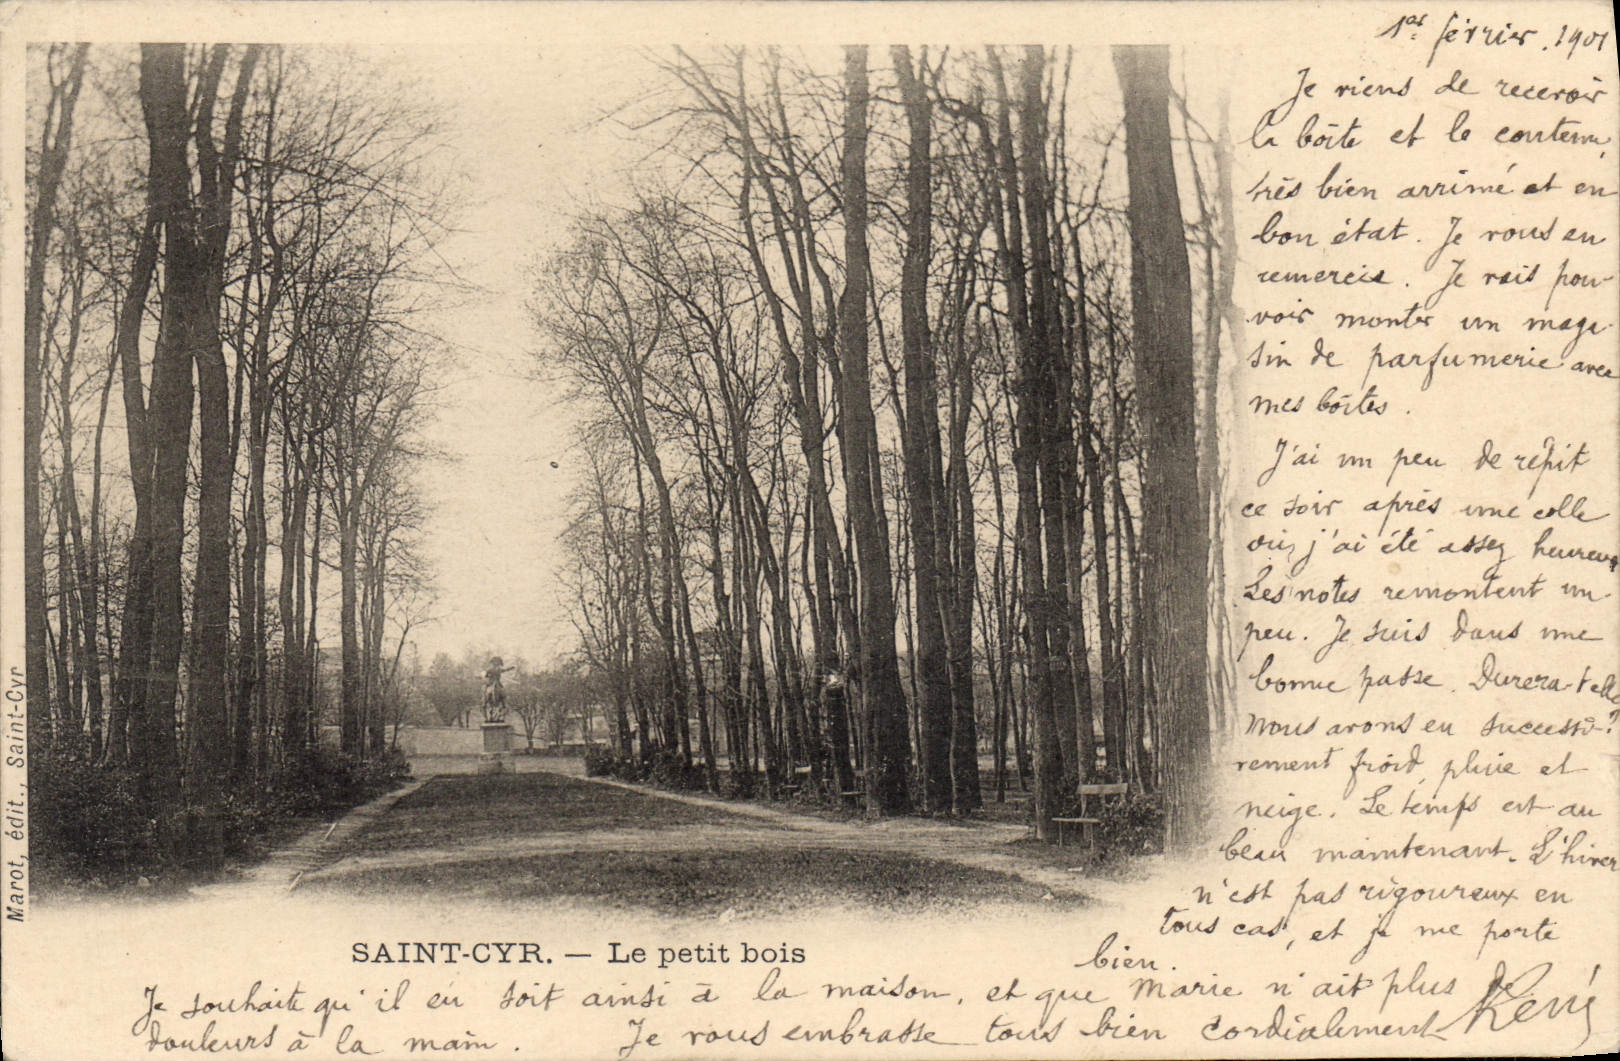 1er février 1901
Je viens de recevoir
la boîte et le contenu,
très bien arrimé et en
bon état. Je vous en
remercie. Je vais pou-
voir monter un maga-
sin de parfumerie avec
mes boîtes.
J'ai un peu de répit
ce soir après une colle
où j'ai été assez heureux
Les notes remontent un
peu. Je suis dans une
bonne passe. Durera-t-elle ?
Nous avons eu successi-
vement froid, pluie et
neige. Le temps est au
beau maintenant. L'hiver
n'est pas rigoureux en
tous cas, et je me porte
bien.
SAINT-CYR. — Le petit bois
Je souhaite qu'il en soit ainsi à la maison, et que Marie n'ait plus de
douleurs à la main. Je vous embrasse tous bien cordialement René
Marot, édit., Saint-Cyr